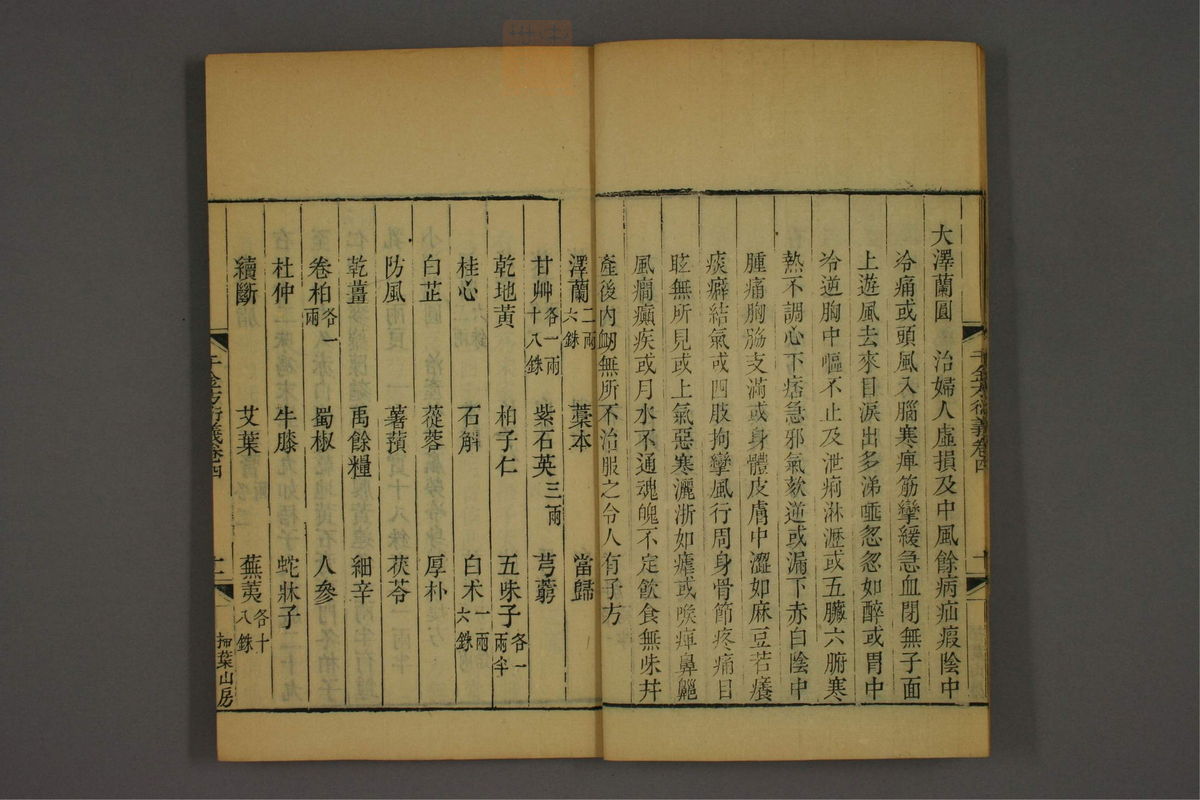 大澤蘭圓　治婦人虛損及中風餘病疝瘕陰中
冷痛或頭風入腦寒痺筋攣緩急血閉無子面
上遊風去來目淚出多涕唾忽忽如醉或胃中
冷逆胸中嘔不止及泄痢淋瀝或五臟六腑寒
熱不調心下痞急邪氣欬逆或漏下赤白陰中
腫痛胸脇支滿或身體皮膚中澀如麻豆若癢
痰癖結氣或四肢拘攣風行周身骨節疼痛目
眩無所見或上氣惡寒灑淅如瘧或喉痺鼻齆
風癎癲疾或月水不通魂魄不定飲食無味并
產後內衂無所不治服之令人有子方
澤蘭二兩六銖　藁本　當歸
甘艸各一兩十八銖　紫石英三兩　芎藭
乾地黃　柏子仁　五味子各一兩半
桂心　石斛　白朮一兩六銖
白芷　蓯蓉　厚朴
防風　薯蕷　茯苓
乾薑　禹餘糧　細辛
卷柏各一兩　蜀椒　人參
杜仲　牛膝　蛇牀子
續斷　艾葉　蕪荑各十八銖
千金方衍義卷四
掃葉山房